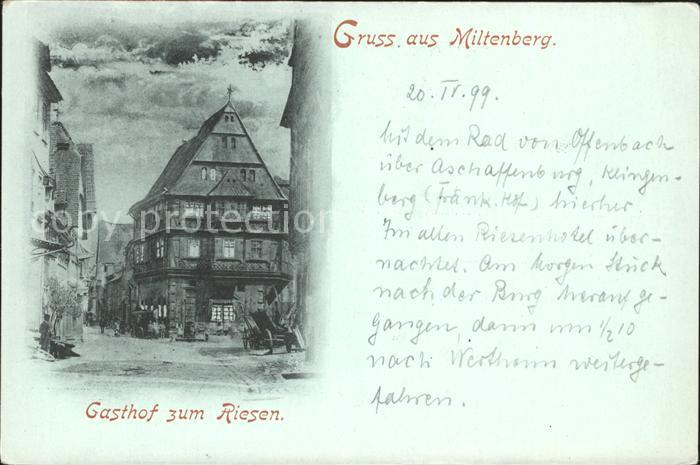 Gruss aus Miltenberg.
20. IV. 99.
Mit dem Rad von Offenbach
über Aschaffenburg, Klingen-
berg (Fränk. Hof.) hierher.
Im alten Riesenhotel über-
nachtet. Am Morgen Stück
nach der Burg herauf ge-
gangen, dann um 1/2 10
nach Wertheim weiterge-
fahren.
Gasthof zum Riesen.
copyright protection